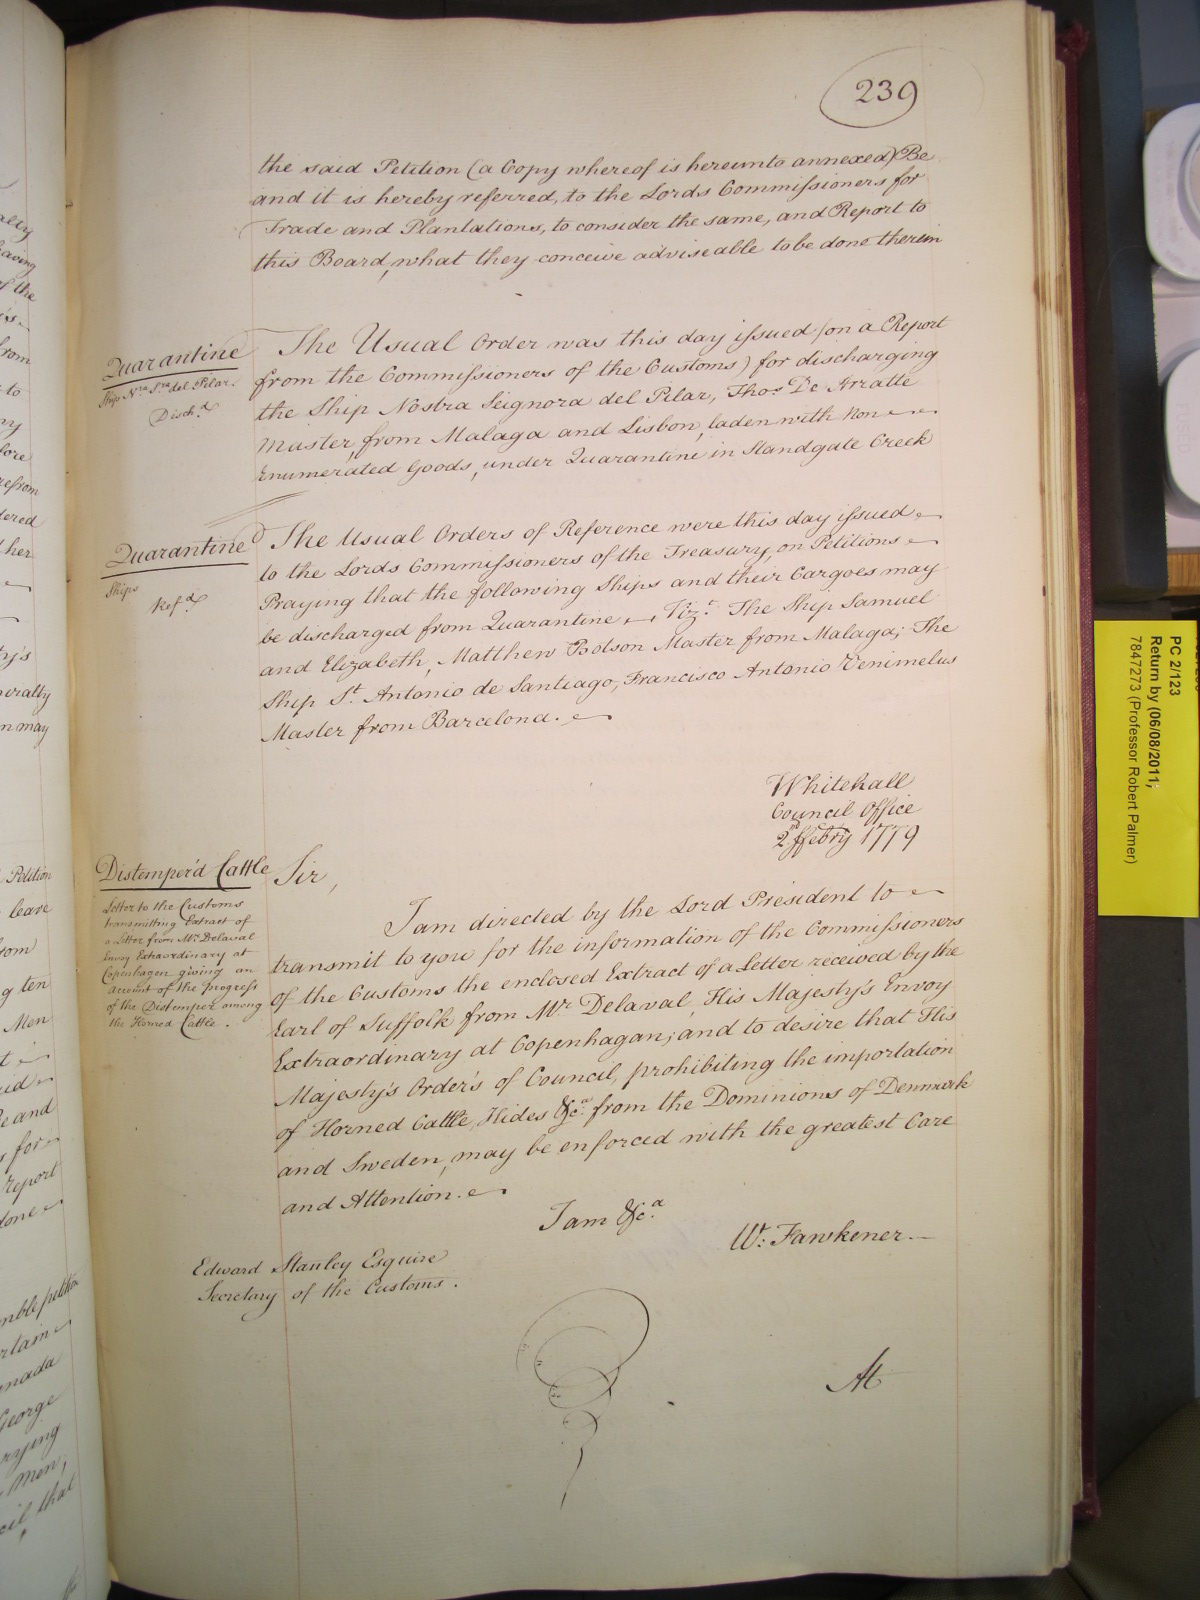 239
the said Petition (a Copy whereof is hereunto annexed) Be
and it is hereby referred, to the Lords Commissioners for
Trade and Plantations, to consider the same, and Report to
this Board, what they conceive adviseable to be done therein
Quarantine
Ship N.ra S.ra del Pilar.
Disch.d
The Usual Order was this day issued (on a Report
from the Commissioners of the Customs) for discharging
the Ship Nostra Seignora del Pilar, Thos. De Arratte
Master, from Malaga and Lisbon, laden with Non
Enumerated Goods, under Quarantine in Standgate Creek
Quarantine
Ships
Ref.d
The Usual Orders of Reference were this day issued
to the Lords Commissioners of the Treasury, on Petitions
Praying that the following Ships and their Cargoes may
be discharged from Quarantine, Viz.t The Ship Samuel
and Elizabeth, Matthew Dobson Master from Malaga; The
Ship St. Antonio de Santiago, Francisco Antonio Venimelus
Master from Barcelona.
Whitehall
Council Office
2nd Febry 1779
Distemper'd Cattle
Letter to the Customs
transmitting Extract of
a Letter from Mr. Delaval
Envoy Extraordinary at
Copenhagen giving an
account of the progress
of the Distemper among
the Horned Cattle.
Sir,
I am directed by the Lord President to
transmit to you for the information of the Commissioners
of the Customs the enclosed Extract of a Letter received by the
Earl of Suffolk from Mr. Delaval, His Majesty's Envoy
Extraordinary at Copenhagan; and to desire that His
Majesty's Order's of Council, prohibiting the importation
of Horned Cattle, Hides &ca. from the Dominions of Denmark
and Sweden, may be enforced with the greatest Care
and Attention.
I am &ca.
W: Fawkener.
Edward Stanley Esquire
Secretary of the Customs.
At
PC 2/123
Return by (06/08/2011;
7847273 (Professor Robert Palmer)